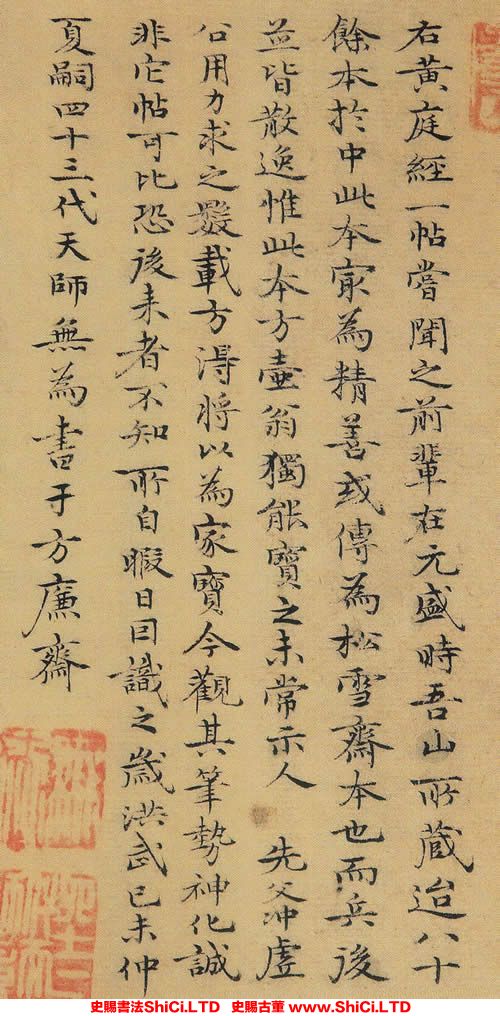 右黃庭經一帖嘗聞之前輩在元盛時吾山所藏迨八十
餘本於中此本冣為精善或傳為松雪齋本也而兵後
並皆散逸惟此本方壺翁獨能寶之未常示人 先父沖虛
公用力求之數載方得將以為家寶今觀其筆勢神化誠
非它帖可比恐後来者不知所自暇日因識之歲洪武己未仲
夏嗣四十三代天師無為書于方廉齋
史賜書法ShiCi.LTD 史賜古董 www.ShiCi.LTD